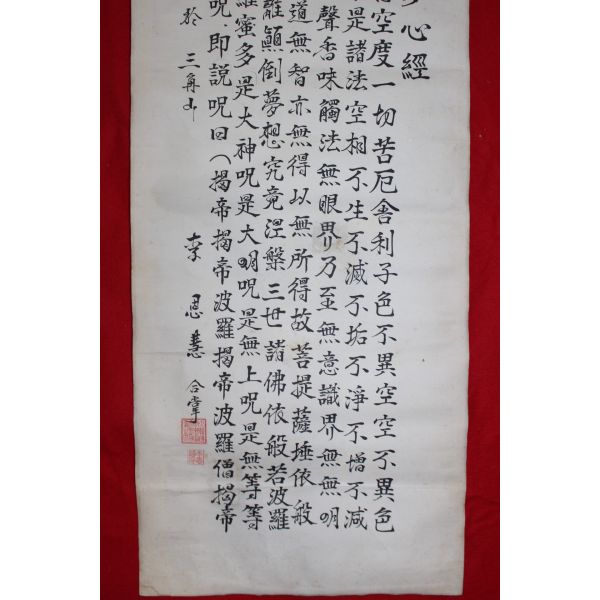 心經
空度一切苦厄舍利子色不異空空不異色
是諸法空相不生不滅不垢不淨不增不減
聲香味觸法無眼界乃至無意識界無無明
道無智亦無得以無所得故菩提薩埵依般
離顚倒夢想究竟涅槃三世諸佛依般若波羅
蜜多是大神呪是大明呪是無上呪是無等等
呪即說呪曰(揭帝揭帝波羅揭帝波羅僧揭帝
於三角山
李恩慧合掌